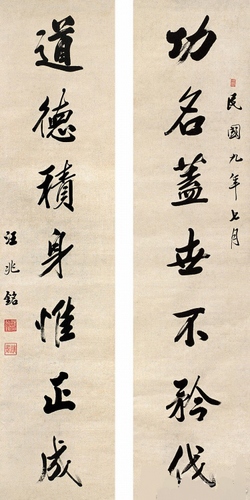 民國九年七月
功名蓋世不矜伐
道德積身惟正成
汪兆銘